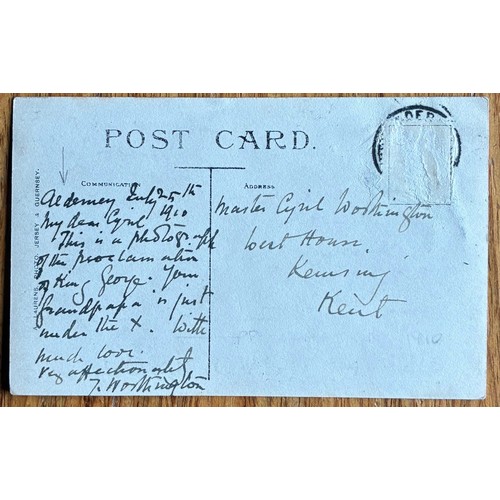 POST CARD.
COMMUNICATION
ADDRESS
LAURENS, PHOTO, JERSEY & GUERNSEY.
Alderney July 25th
My dear Cyril 1910
This is a photograph
of the proclamation
of King George. Your
Grandpapa is just
under the X. With
much love.
Very affectionately
J. Worthington
Master Cyril Worthington
West House,
Kemsing
Kent
1910